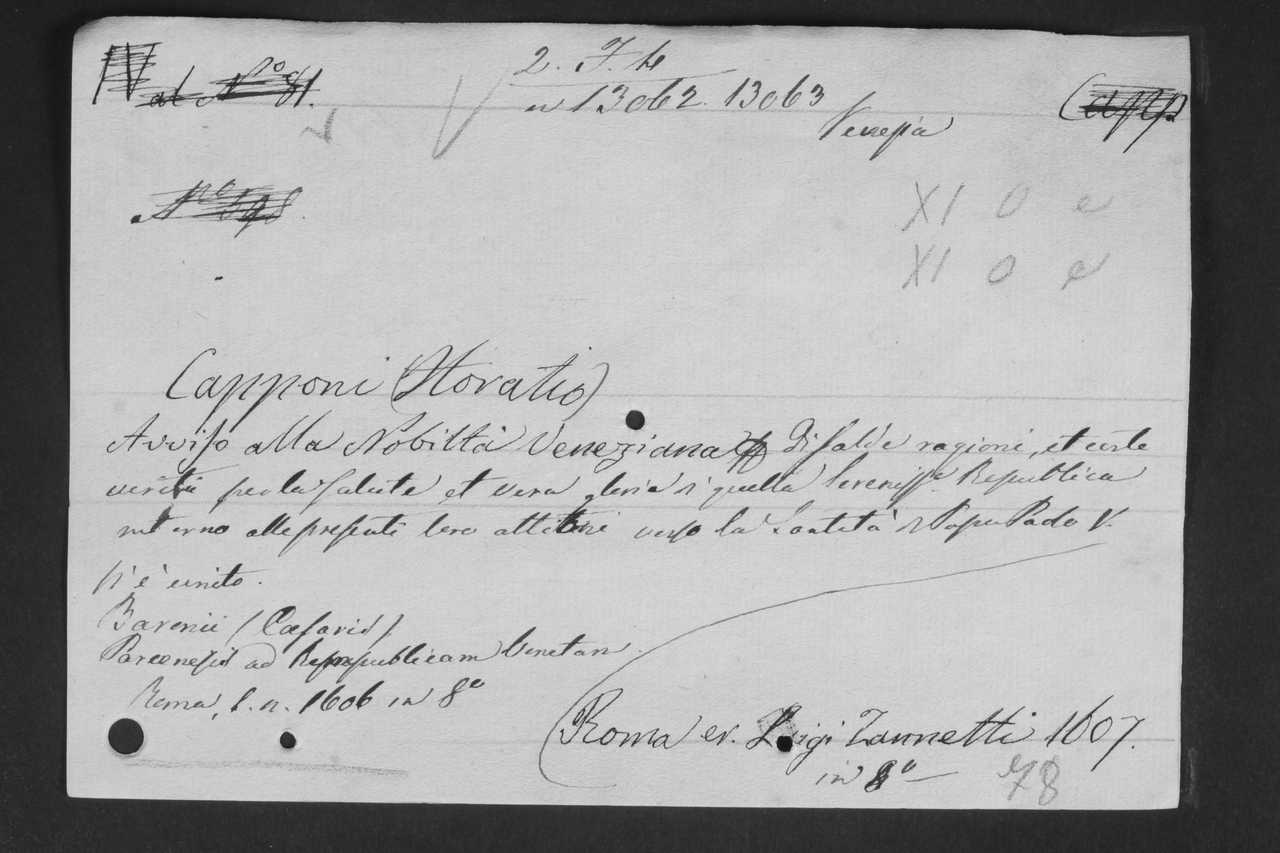 al No 81.
2. J. 4
13062. 13063
Venezia
Capp.
XI O e
XI O e
Capponi (Horatio)
Avviso alla Nobiltà Veneziana di salde ragioni, et certe
verità per la salute et vera gloria di quella Sereniss.ª Republica
intorno alle presenti loro attioni verso la Santità di Papa Paolo V.
vi è unito.
Baronii (Cæsaris)
Parænesis ad Rempublicam Venetam.
Roma, s. n. 1606 in 8º
Roma ex. Luigi Zannetti 1607.
in 8º
78